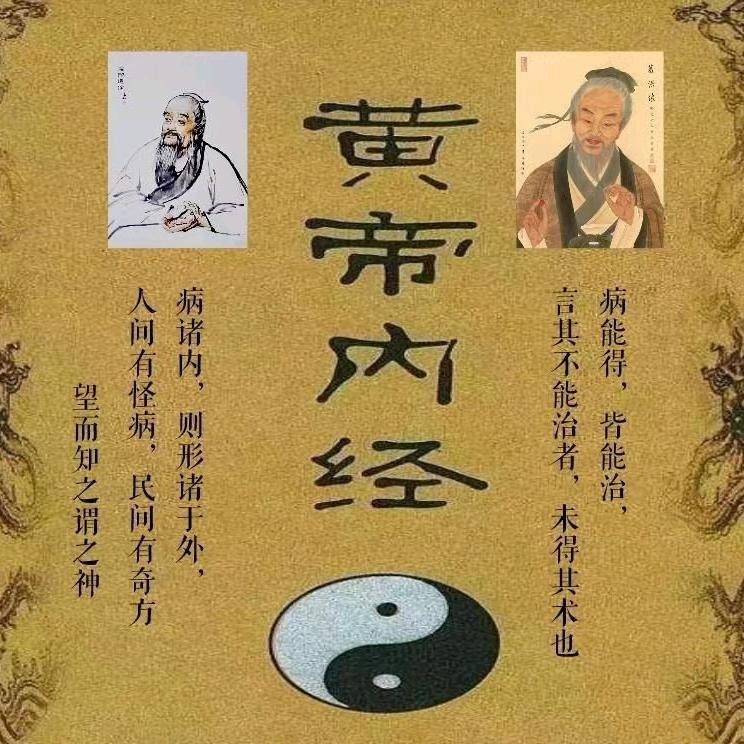 黄帝内经
病能得，皆能治，
言其不能治者，未得其术也
病诸内，则形诸于外，
人间有怪病，民间有奇方
望而知之谓之神
葛洪像